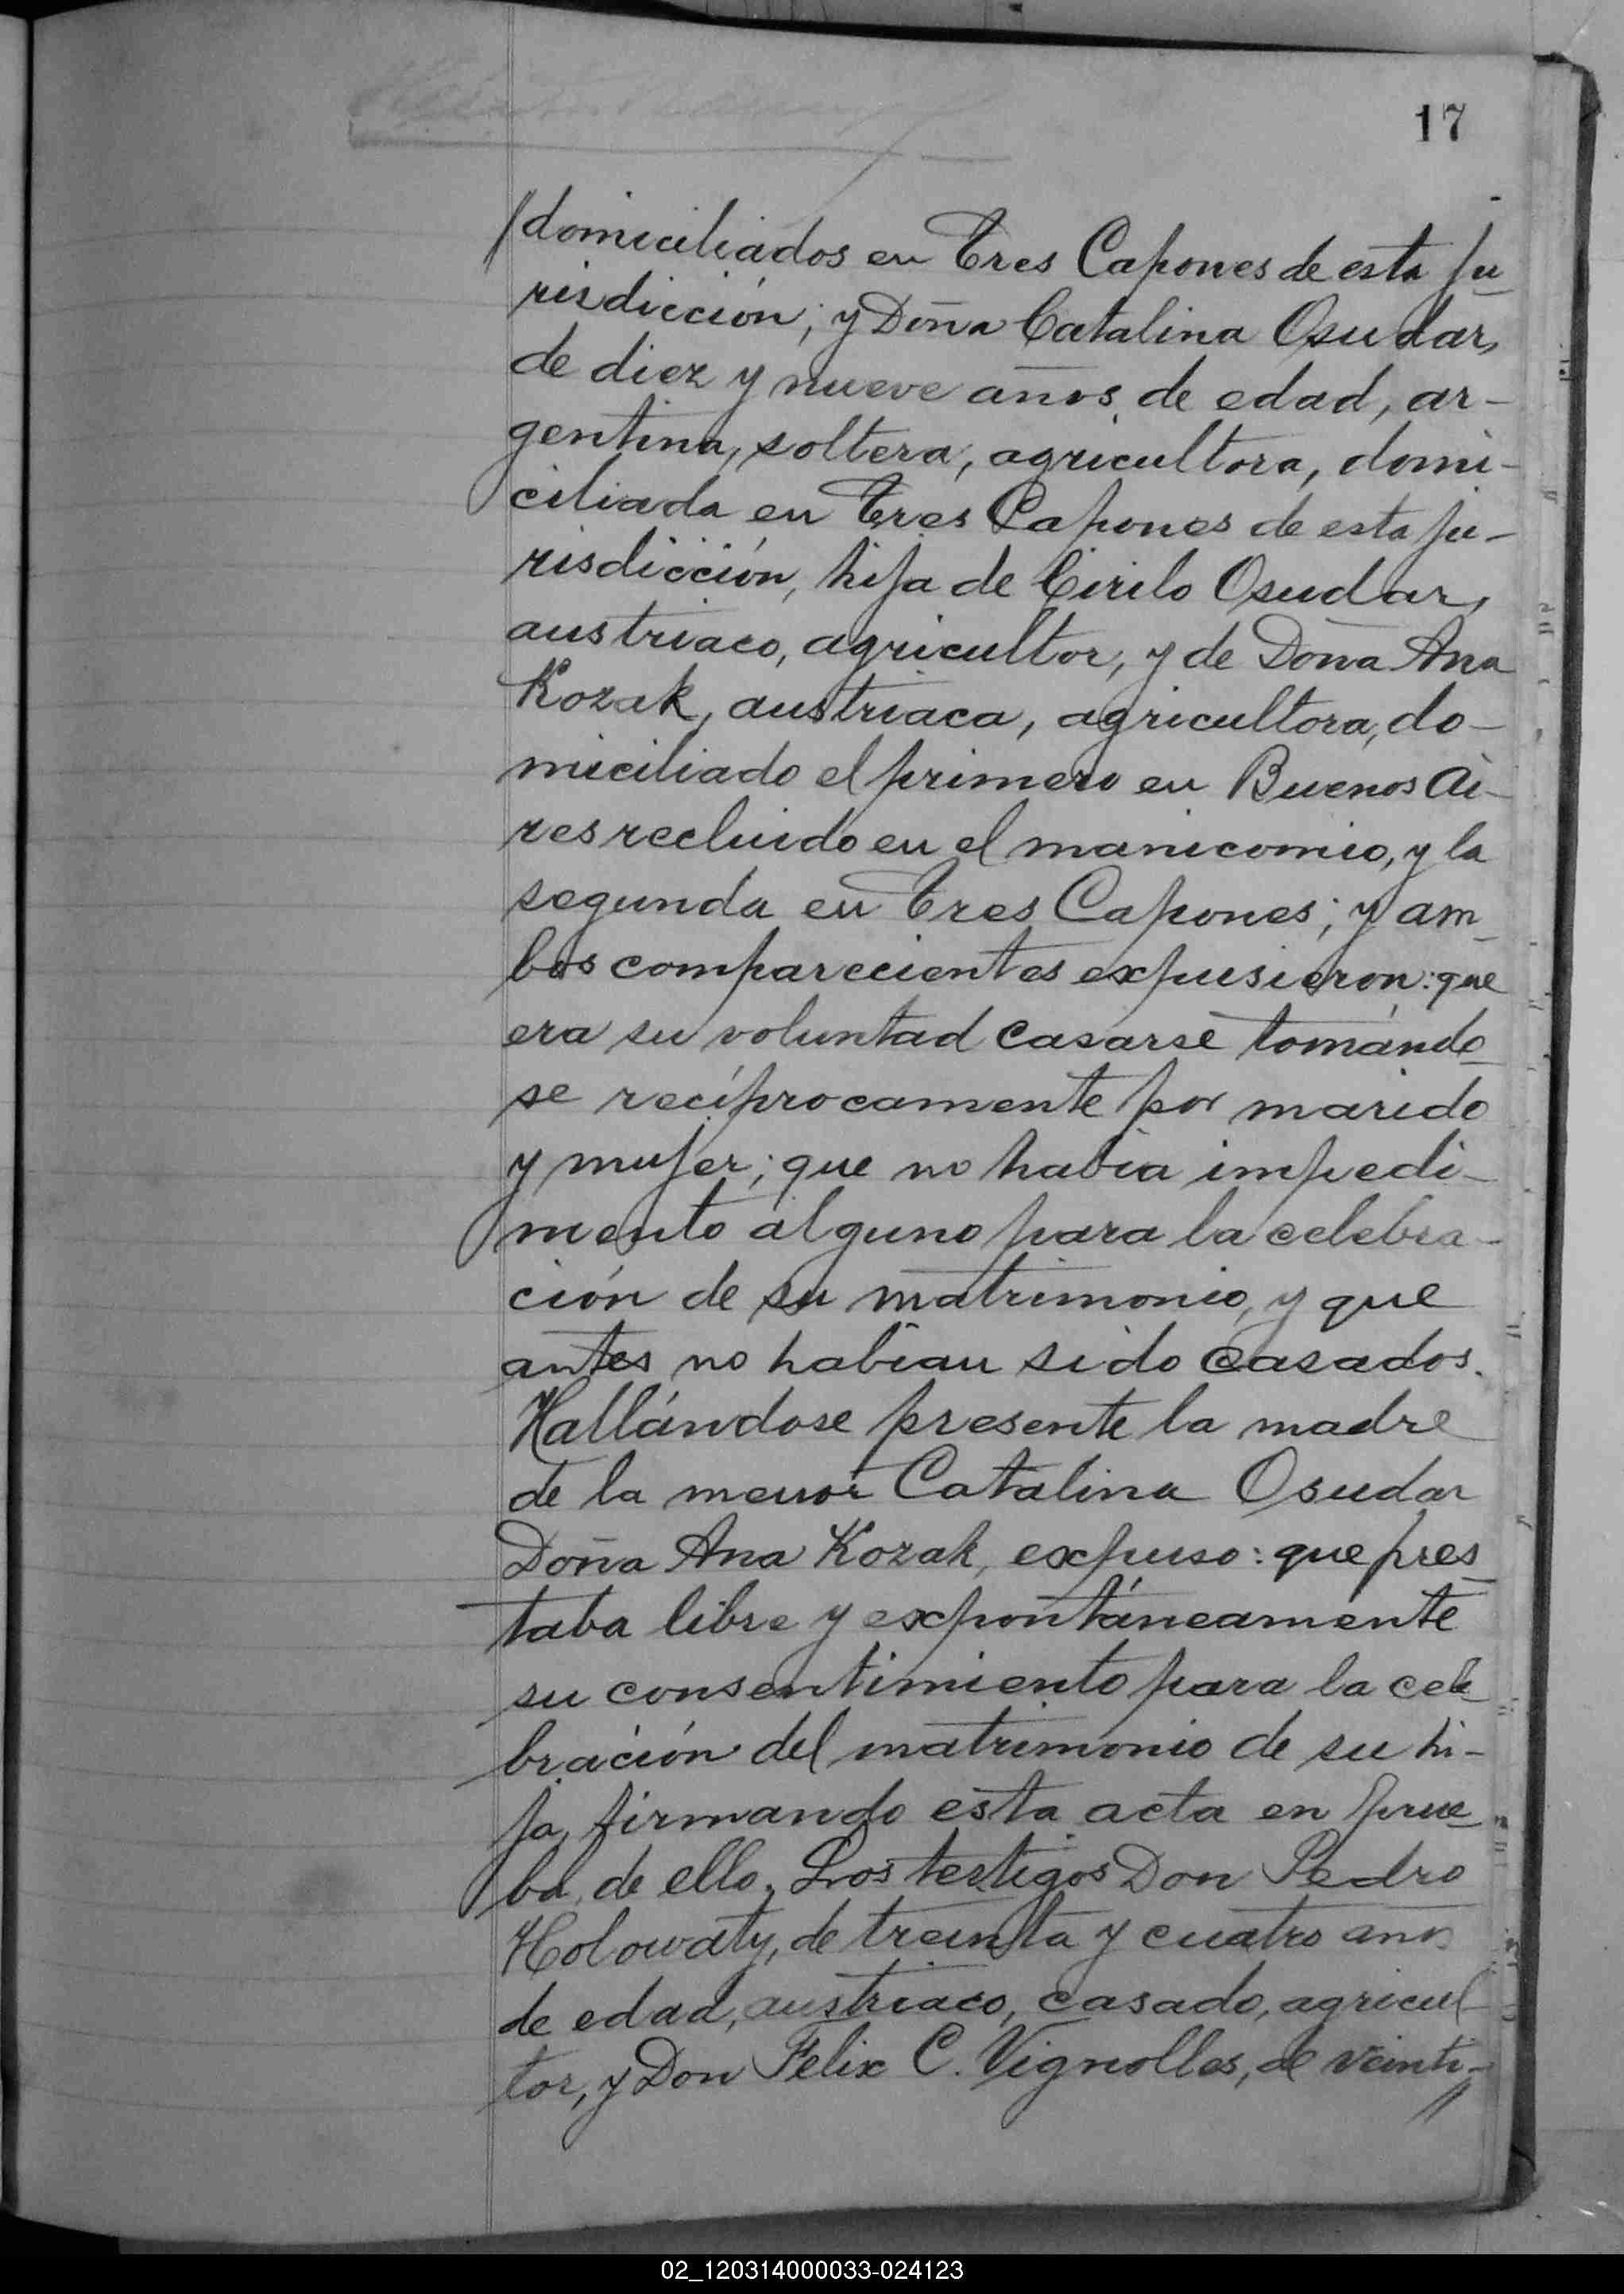 17
domiciliados en Tres Capones de esta ju
risdicción; y Doña Catalina Osudar,
de diez y nueve años de edad, ar-
gentina, soltera, agricultora, domi-
ciliada en Tres Capones de esta ju-
risdicción, hija de Cirilo Osudar,
austriaco, agricultor, y de Doña Ana
Kozak, austriaca, agricultora, do-
miciliado el primero en Buenos Ai-
res recluido en el manicomio, y la
segunda en Tres Capones; y am-
bos comparecientes expusieron: que
era su voluntad casarse tomándo
se recíprocamente por marido
y mujer; que no había impedi-
mento alguno para la celebra-
ción de su matrimonio, y que
antes no habian sido casados.
Hallándose presente la madre
de la menor Catalina Osudar
Doña Ana Kozak, expuso: que pres
taba libre y expontáneamente
su consentimiento para la cele
bración del matrimonio de su hi-
ja, firmando esta acta en prue
ba de ello. Los testigos Don Pedro
Holowaty, de treinta y cuatro años
de edad, austriaco, casado, agricul
tor, y Don Felix C. Vignolles, de veinti-
02_120314000033-024123